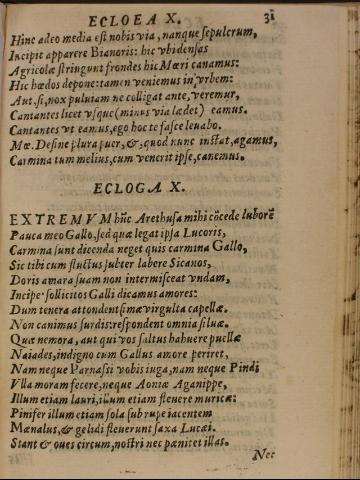 ECLOEA X. 31
Hinc adeo media est nobis via, nanque sepulcrum,
Incipit apparere Bianoris: hic vbi densas
Agricolæ stringunt frondes hic Mœri canamus:
Hic hœdos depone: tamen veniemus in vrbem:
Aut, si, nox pluuiam ne colligat ante, veremur,
Cantantes licet vsque (minus via lædet) eamus.
Cantantes vt eamus, ego hoc te fasce leuabo.
Mœ. Desine plura puer, &, quod nunc instat, agamus,
Carmina tum melius, cum venerit ipse, canemus.
ECLOGA X.
EXTREMVM hũc Arethusa mihi cõcede laborẽ
Pauca meo Gallo, sed quæ legat ipsa Lucoris,
Carmina sunt dicenda neget quis carmina Gallo,
Sic tibi cum fluctus subter labere Sicanos,
Doris amara suam non intermisceat vndam,
Incipe sollicitos Galli dicamus amores:
Dum tenera attondent simæ virgulta capellæ.
Non canimus surdis: respondent omnia siluæ.
Quæ nemora, aut qui vos saltus habuere puellæ
Naiades, indigno cum Gallus amore periret,
Nam neque Parnasi vobis iuga, nam neque Pindi
Vlla moram fecere, neque Aoniæ Aganippe,
Illum etiam lauri, illum etiam fleuere muricæ:
Pinifer illum etiam sola sub rupe iacentem
Mænalus, & gelidi fleuerunt saxa Lucæi.
Stant & oues circum, nostri nec pænitet illas.
Nec